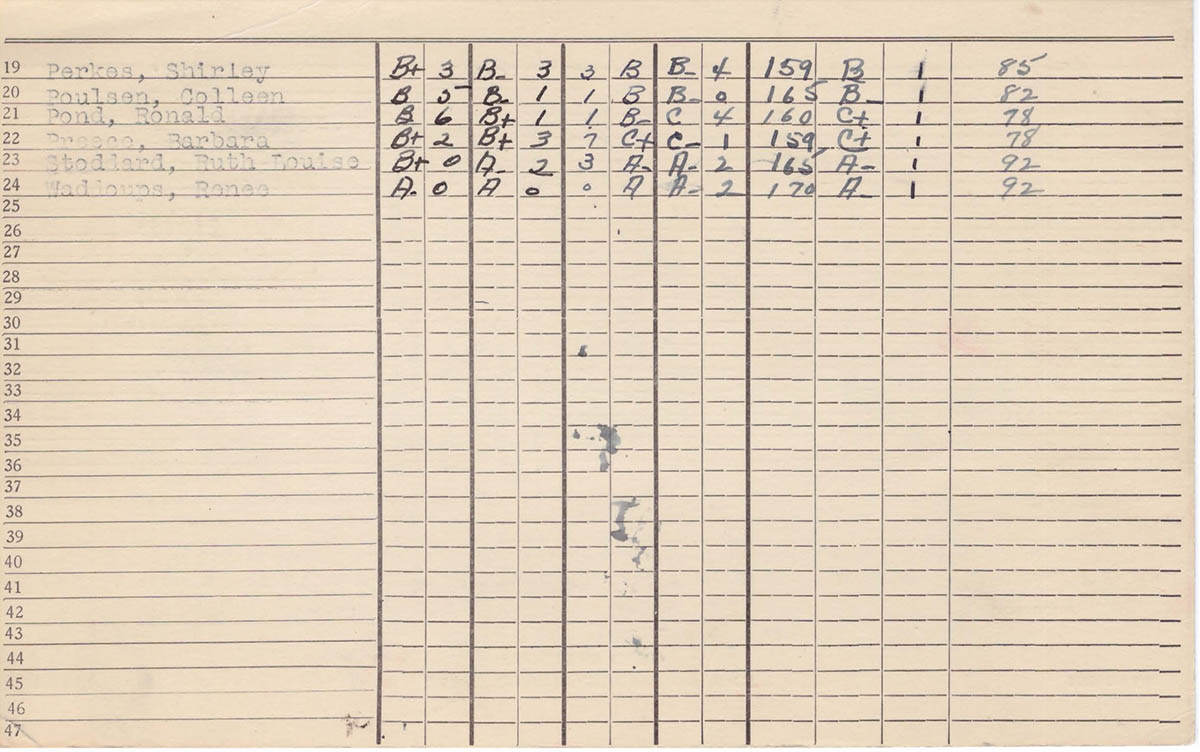 19 Perkes, Shirley B+ 3 B- 3 3 B B- 4 159 B 1 85
20 Poulsen, Colleen B 5 B- 1 1 B B- 0 165 B- 1 82
21 Pond, Ronald B 6 B+ 1 1 B- C 4 160 C+ 1 78
22 Preece, Barbara B+ 2 B+ 3 7 C+ C- 1 159 C+ 1 78
23 Stodlard, Ruth Louise B+ 0 A- 2 3 A- A- 2 165 A- 1 92
24 Wadloups, Renee A- 0 A 0 0 A A- 2 170 A- 1 92
25
26
27
28
29
30
31
32
33
34
35
36
37
38
39
40
41
42
43
44
45
46
47